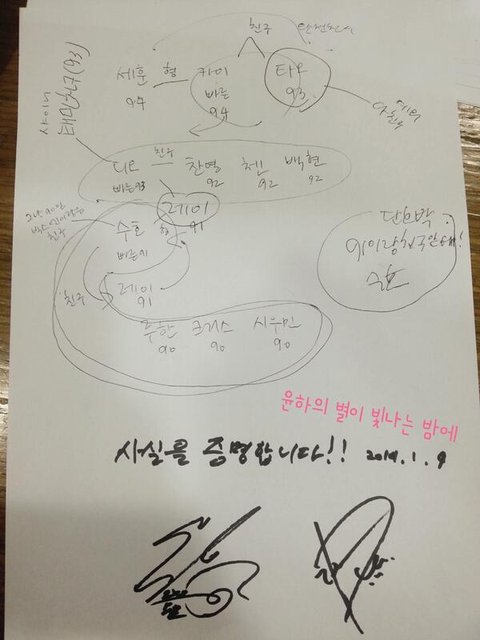 친구
세훈 형 카이 타오
94 빠른 93
94
샤이니
태민친구(93)
디오 친구 찬열 첸 백현
빠른93 92 92 92
레이
수호 형 91
빠른91
친구
레이
91
친구
루한 크리스 시우민
90 90 90
단호박
91이랑 친구 안해!
윤하의 별이 빛나는 밤에
사실을 증명합니다!! 2014.1.9